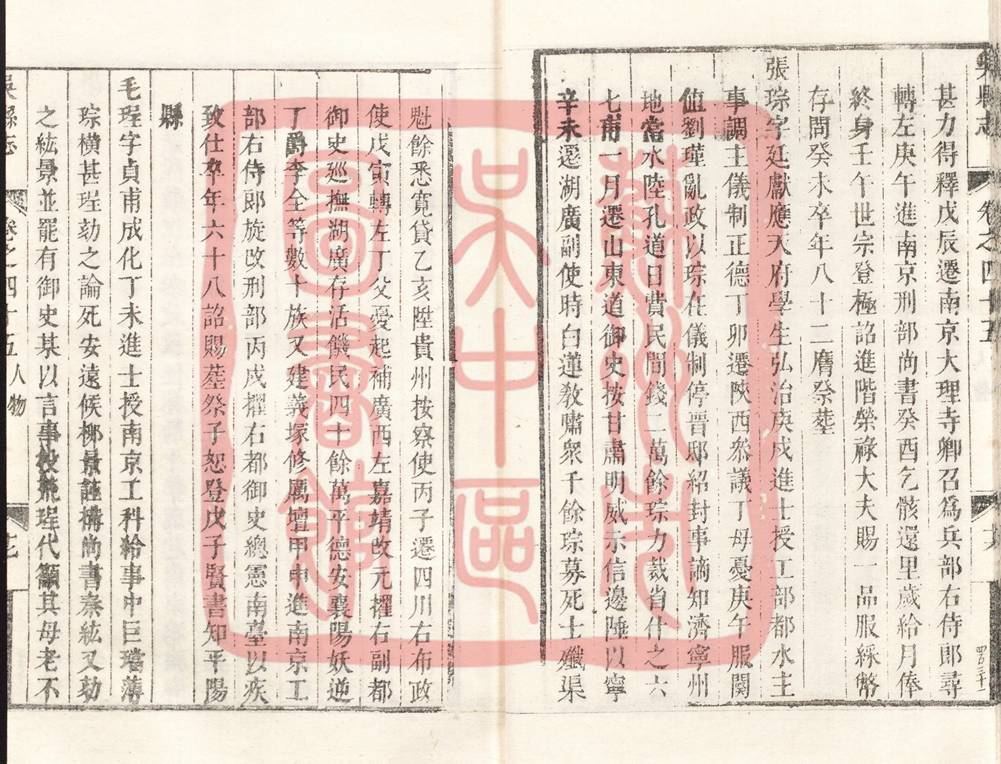 吳縣志 卷之四十五
甚力得釋戊辰遷南京大理寺卿召爲兵部右侍郎尋
轉左庚午進南京刑部尚書癸酉乞骸還里歲給月俸
終身壬午世宗登極詔進階榮祿大夫賜一品服綵幣
存問癸未卒年八十二贈祭塟
張琮字廷獻應天府學生弘治庚戌進士授工部都水主
事調主儀制正德丁卯遷陝西叅議丁母憂庚午服闋
値劉瑾亂政以琮在儀制停晉邸紹封事謫知濟寧州
地當水陸孔道日費民間錢二萬餘琮力裁省什之六
七甫一月遷山東道御史按甘肅明威示信邊陲以寧
辛未遷湖廣副使時白蓮敎嘯衆千餘琮募死士殲渠
魁餘悉寬貸乙亥陞貴州按察使丙子遷四川右布政
使戊寅轉左丁父憂起補廣西左嘉靖改元擢右副都
御史巡撫湖廣存活饑民四十餘萬平德安襄陽妖逆
丁爵李全等數十族又建義塚修厲壇甲申進南京工
部右侍郎旋改刑部丙戌擢右都御史總憲南臺以疾
致仕卒年六十八詔賜塟祭子恕登戊子賢書知平陽
縣
毛珵字貞甫成化丁未進士授南京工科給事中巨璫薄
琮橫甚珵劾之論死安遠侯柳景誣構尚書秦紘又劾
之紘景並罷有御史某以言事投荒珵代籲其母老不
吳縣志 卷之四十五 人物
蘇州市
吳中區
圖書館